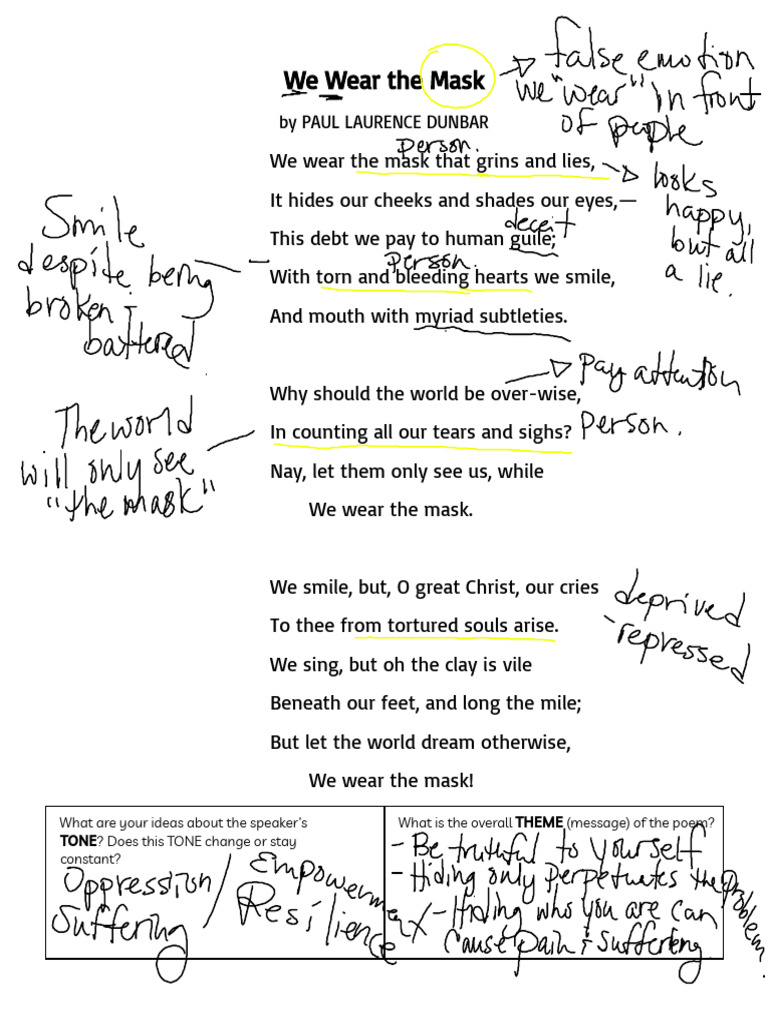 We Wear the Mask
false emotion
we "wear" in front
of people
by PAUL LAURENCE DUNBAR
person.
We wear the mask that grins and lies,
looks
happy,
but all
a lie.
It hides our cheeks and shades our eyes,—
deceit
This debt we pay to human guile;
Smile
despite being
broken +
battered
person.
With torn and bleeding hearts we smile,
And mouth with myriad subtleties.
Pay attention
Why should the world be over-wise,
The world
will only see
"the mask"
In counting all our tears and sighs? Person.
Nay, let them only see us, while
We wear the mask.
We smile, but, O great Christ, our cries
deprived
-repressed
To thee from tortured souls arise.
We sing, but oh the clay is vile
Beneath our feet, and long the mile;
But let the world dream otherwise,
We wear the mask!
What are your ideas about the speaker's
TONE? Does this TONE change or stay
constant?
Oppression/
Suffering
Empowerment
Resilience
What is the overall THEME (message) of the poem?
- Be truthful to yourself
- Hiding only perpetuates the problem.
- Hiding who you are can
cause pain + suffering